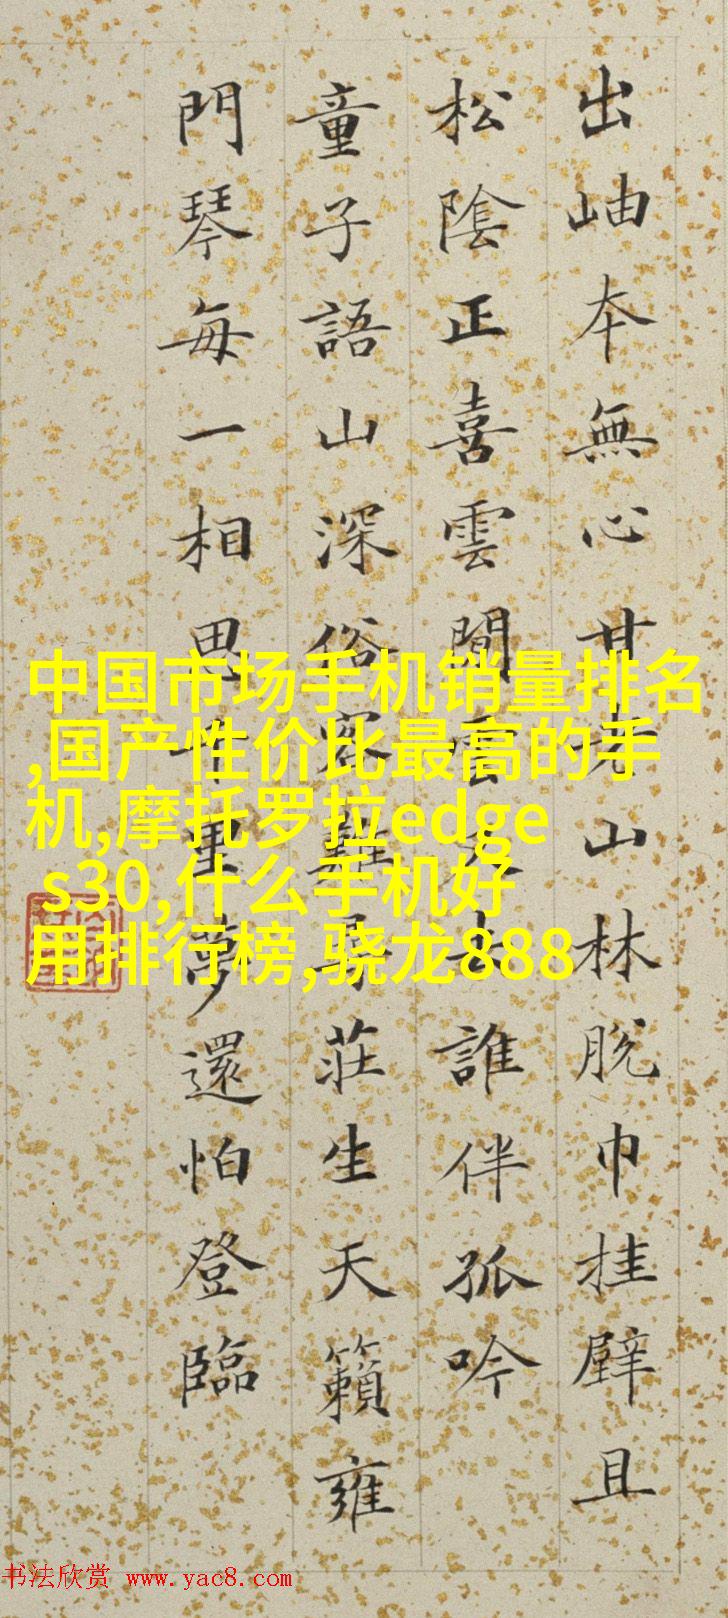 出岫本無心甘山林脫巾挂壁且
松陰正喜雲閒雲又去誰伴孤吟
童子語山深俗客難尋莊生天籟雍
門琴每一相思千里夢還怕登臨
中国市场手机销量排名
,国产性价比最高的手
机,摩托罗拉edge
s30,什么手机好
用排行榜,骁龙888
书法欣赏 www.yac8.com